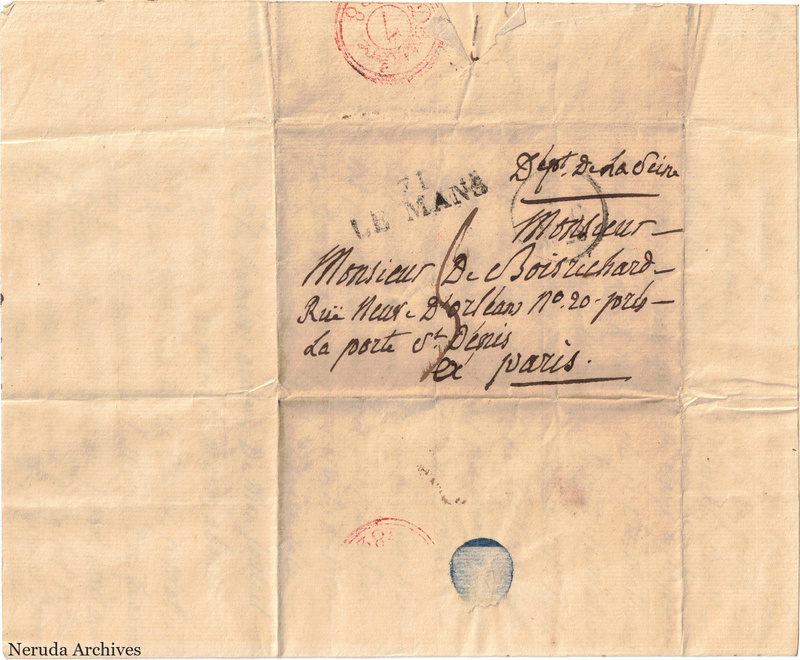 71
LE MANS
Dépt. De La Seine
Monsieur
Monsieur De Boisrichard
Ruë Neuve D'orléan No 20 près
La porte St. Dénis
a paris.
Neruda Archives